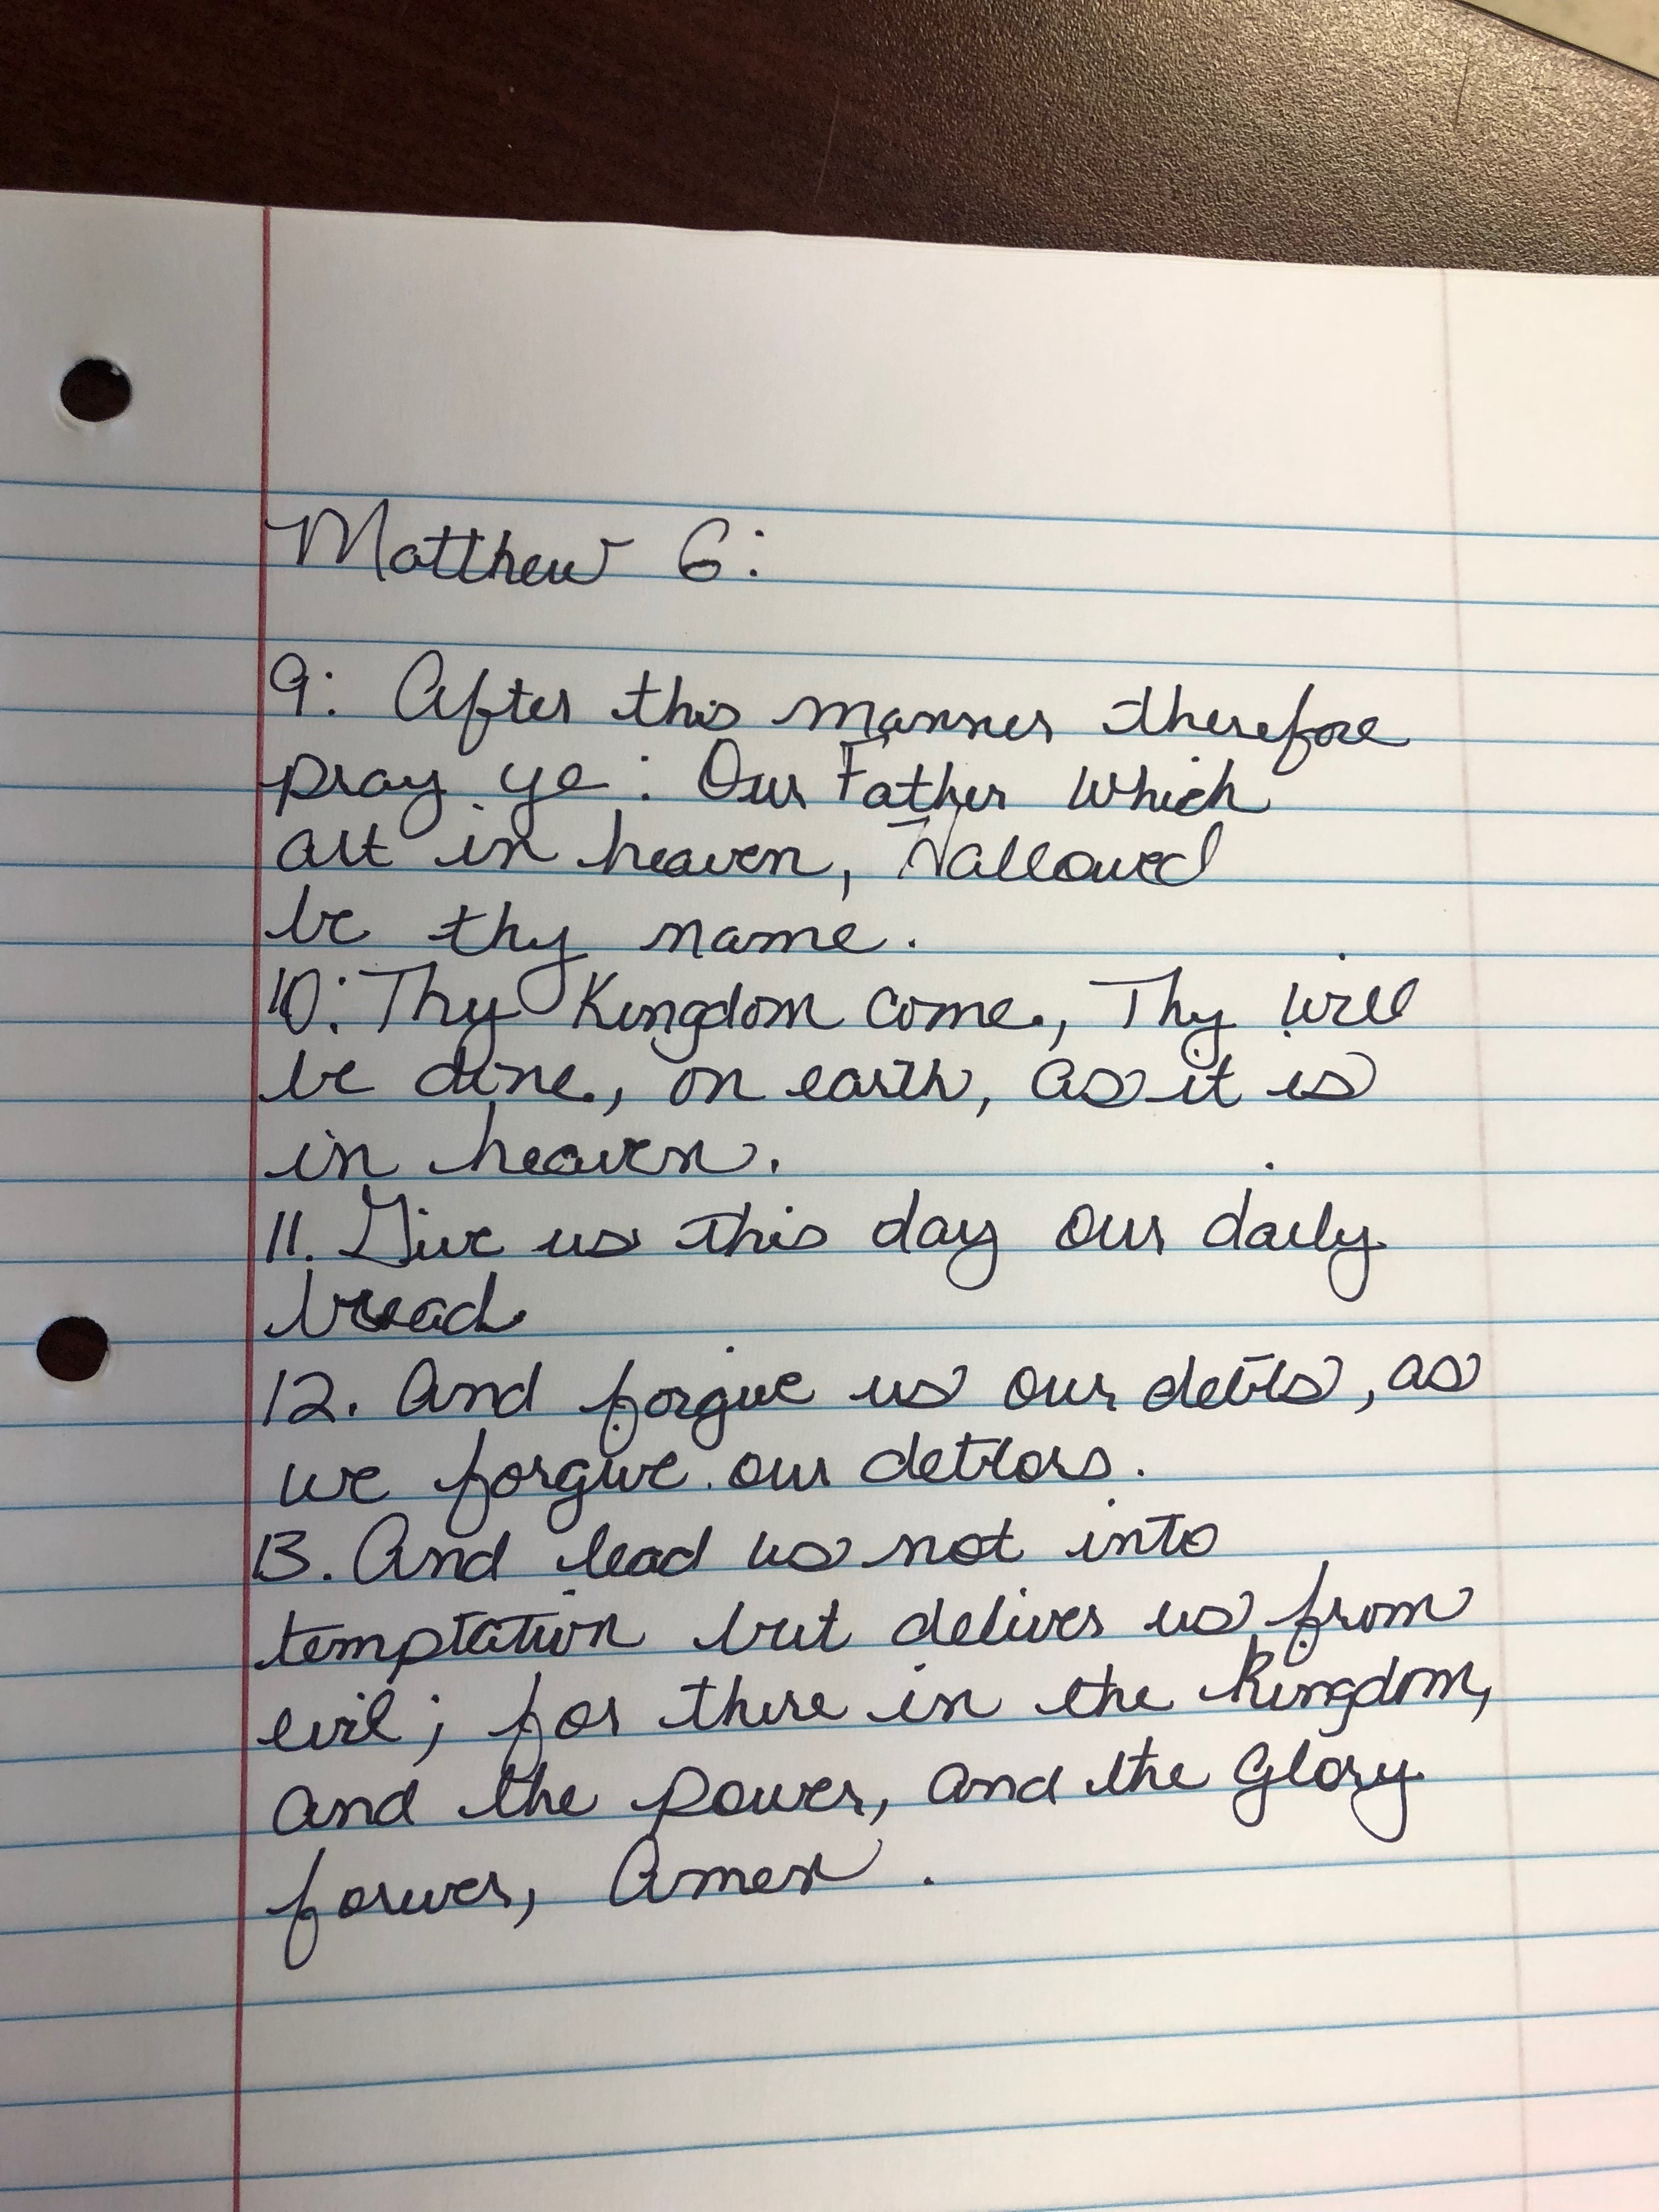 Matthew 6:
9: After this manner therefore
pray ye: Our Father which
art in heaven, Hallowed
be thy name.
10: Thy Kingdom come, Thy will
be done, on earth, as it is
in heaven.
11. Give us this day our daily
bread
12. And forgive us our debts, as
we forgive our debtors.
13. And lead us not into
temptation but deliver us from
evil; for there in the kingdom,
and the power, and the glory
forever, Amen.